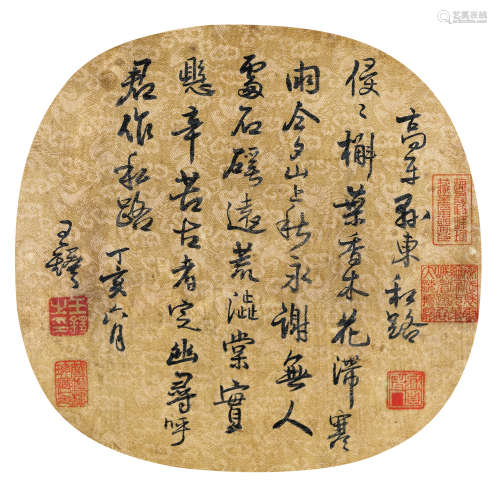 高平縣東私路
侵〻槲葉香木花滯寒
雨今夕山上秋永謝無人
處石磎遠荒澁棠實
懸辛苦古者定幽尋呼
君作私路
丁亥六月
王鐸